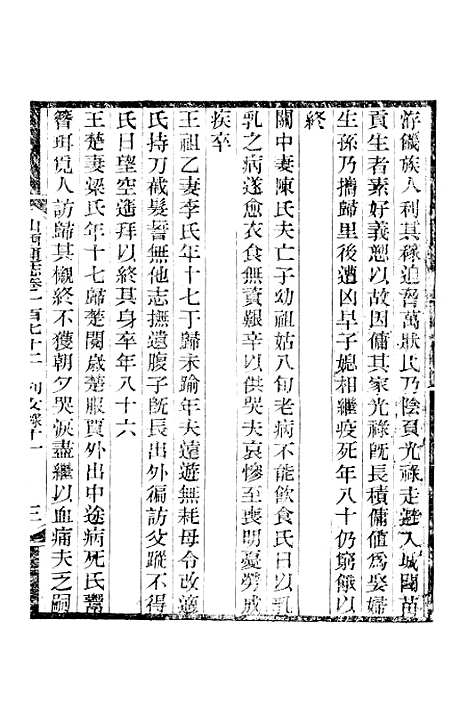 洊饑族人利其祿迫脅萬狀氏乃陰負光祿走避入城國苗
貢生者素好義恕以故因傭其家光祿旣長積傭值爲娶婦
生孫乃攜歸里後遭凶旱子媳相繼疫死年八十仍窮餓以
終
關中妻陳氏夫亡子幼祖姑八旬老病不能飲食氏日以乳
乳之病遂愈衣食無資艱辛以供哭夫哀慘至喪明憂勞成
疾卒
王祖乙妻李氏年十七于歸未踰年夫遠遊無耗母令改適
氏持刀截髮誓無他志撫遺腹子旣長出外徧訪父蹤不得
氏日望空遙拜以終其身卒年八十六
王楚妻梁氏年十七歸楚閱歲楚服賈外出中途病死氏鬻
簪珥覓人訪歸其櫬終不獲朝夕哭淚盡繼以血痛夫之嗣
山西通志卷一百七十二 列女錄十一 三